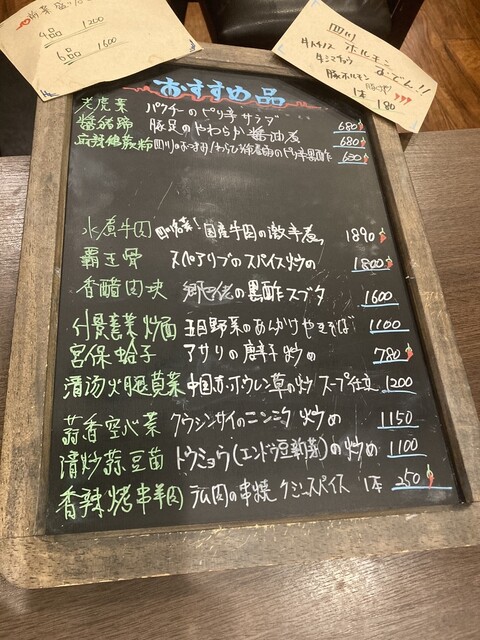 前菜盛り
4品 1200
6品 1600
四川
ホルモン
牛ハチノス
牛シマチョウ おでん!!
豚ホルモン
1本 180
おすすめ品
老虎菜 パクチーのピリ辛サラダ 680
醤猪蹄 豚足のやわらか醤油煮 680
麻辣 蕨粉 四川のおつまみ!わらび のピリ辛黒酢 680
水煮牛肉 四川名菜!国産牛肉の激辛煮 1890
覇王骨 スペアリブのスパイス炒め 1800
香醋肉块 の黒酢スブタ 1600
什景素菜炒面 五目野菜のあんかけやきそば 1100
宮保蛤子 アサリの唐辛子炒め 780
清汤火腿菠菜 中国ホウレン草の炒めスープ仕立 1200
蒜香空心菜 クウシンサイのニンニク炒め 1150
清炒蒜豆苗 トウミョウ(エンドウ豆新芽)の炒め 1100
香辣烤串羊肉 ラム肉の串焼クミンスパイス 1本 250